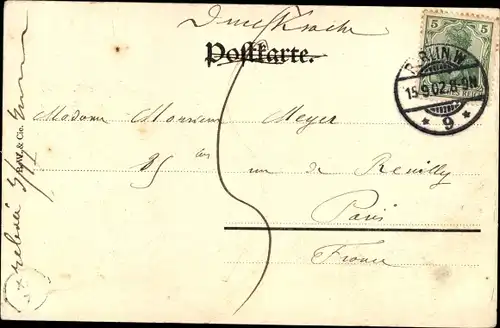 Drucksache
Postkarte.
5 5
BERLIN W.
15.9.02.8-9N
* 9 *
Madame Monsieur Meyer
85 bis rue de Reuilly
Paris
France
& Cie.
5